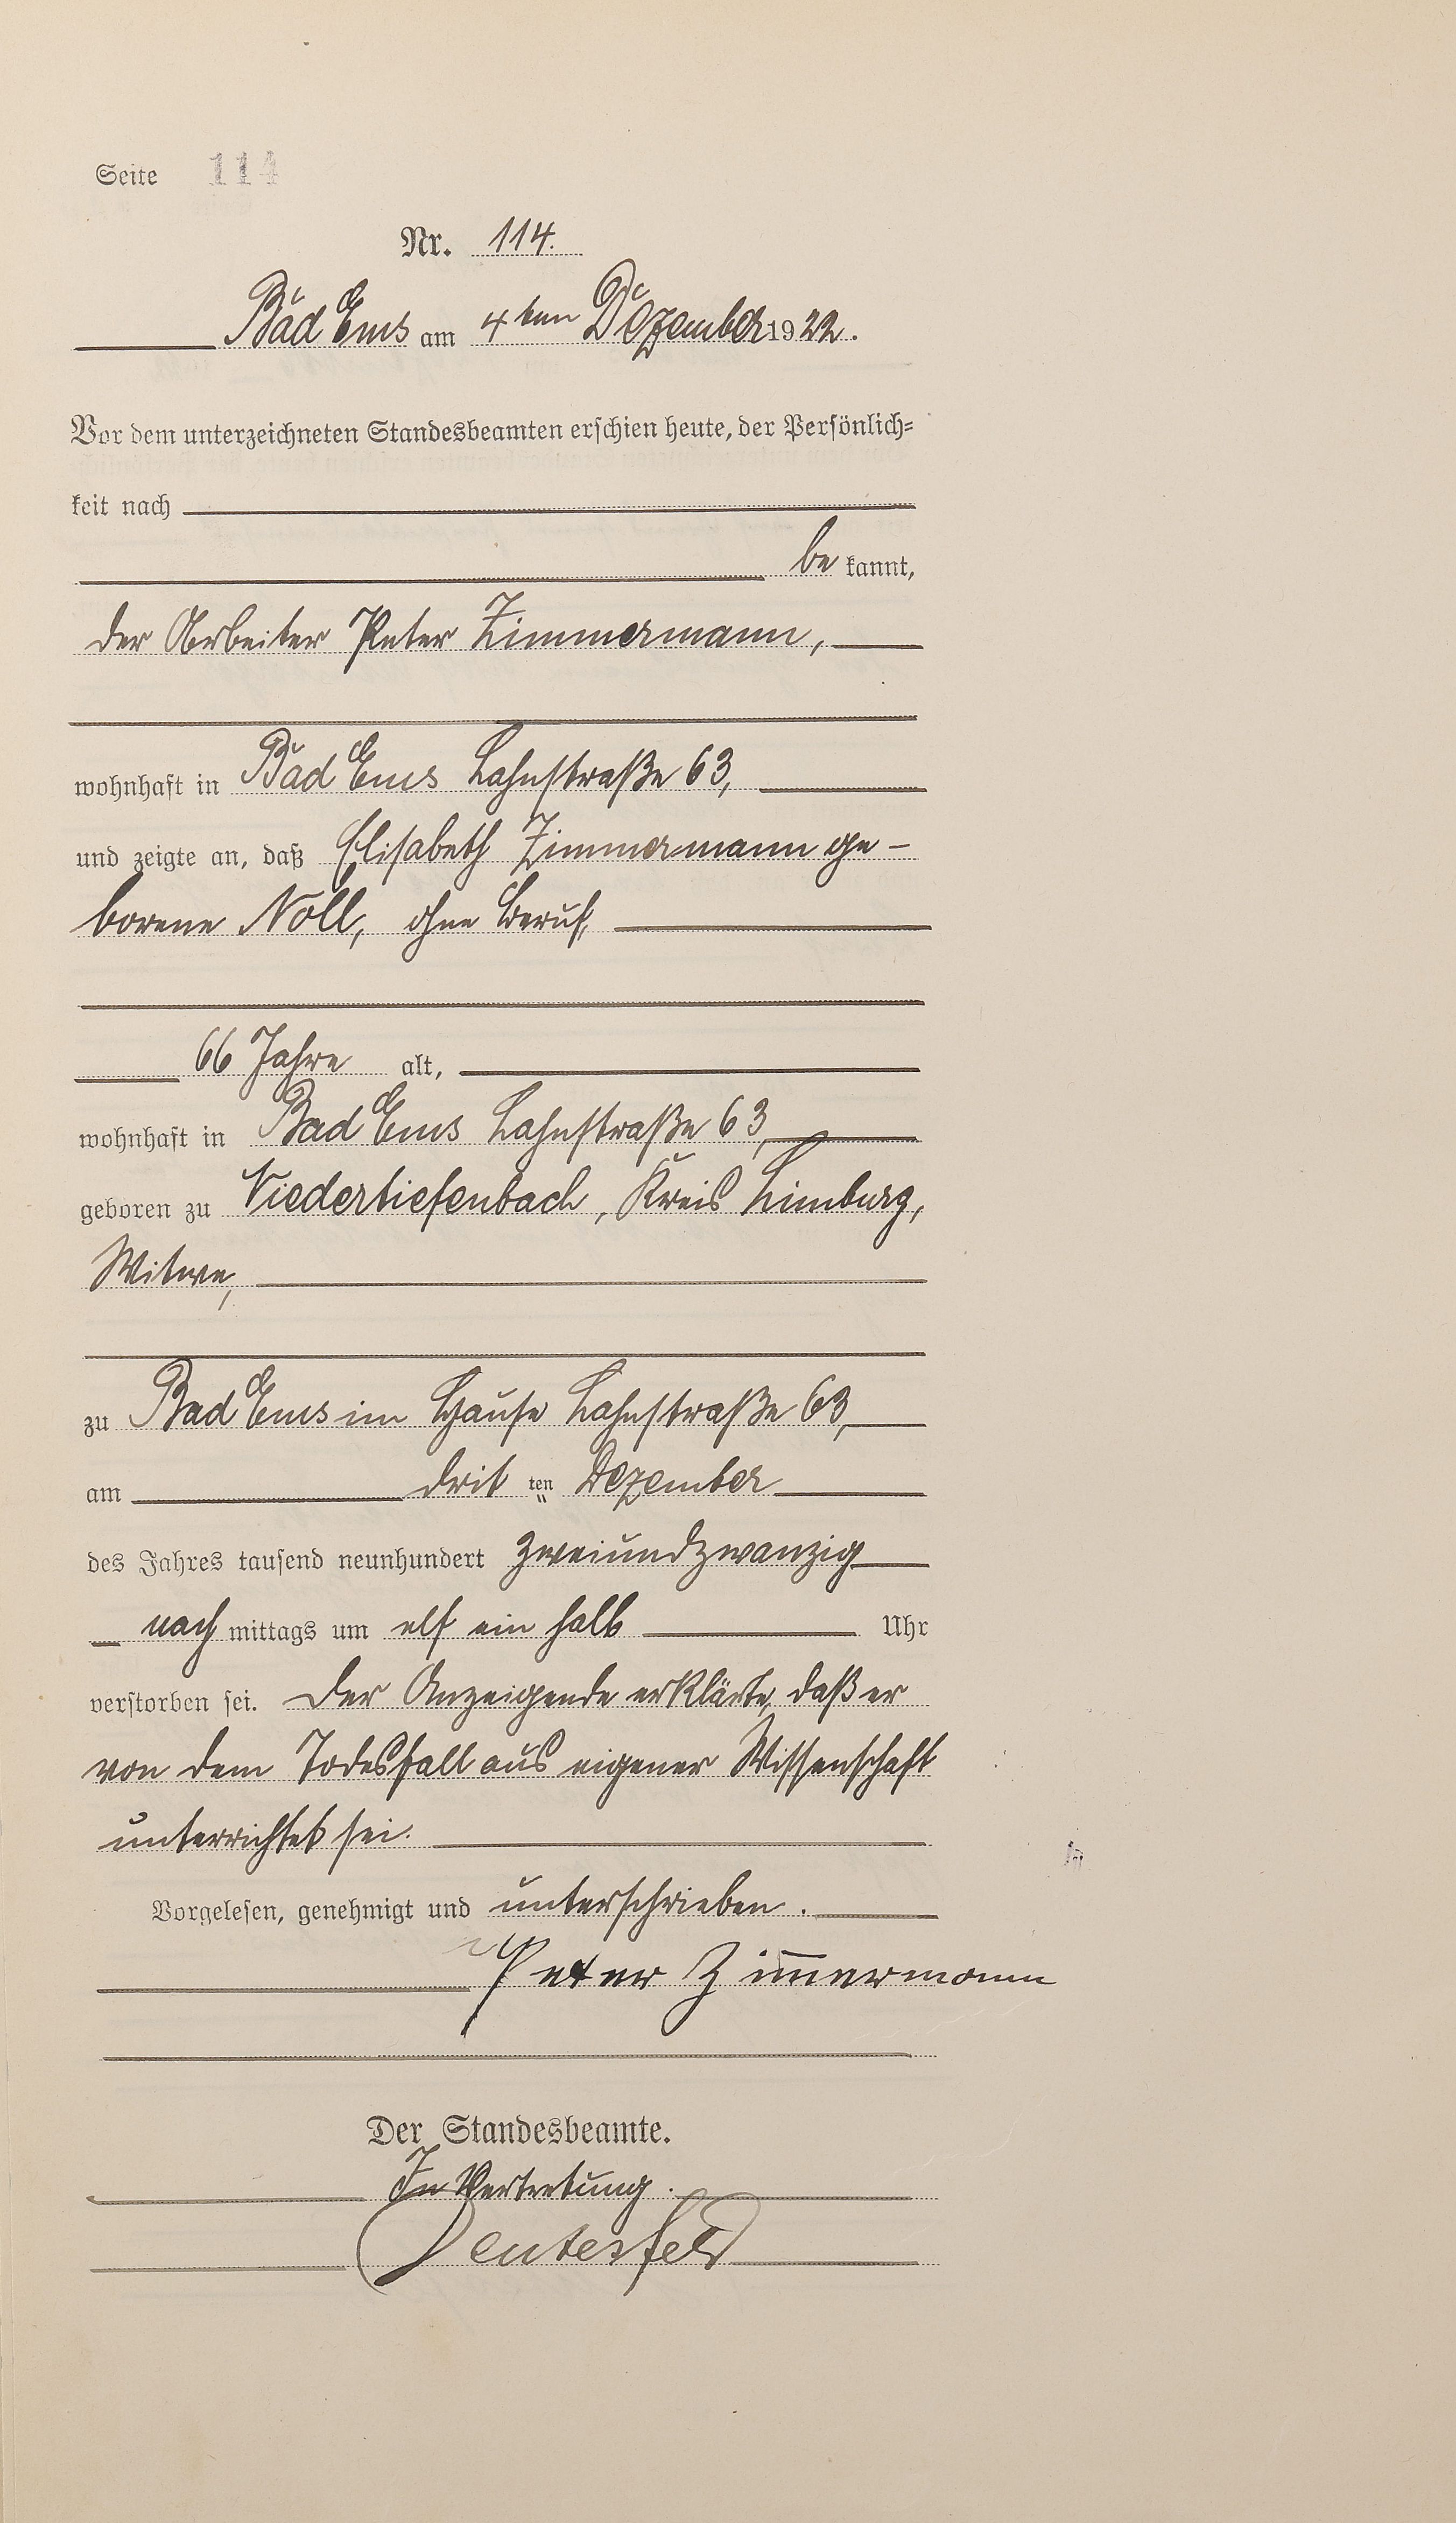 Seite 114
Nr. 114.
Bad Ems am 4ten Dezember 1922.
Vor dem unterzeichneten Standesbeamten erschien heute, der Persönlich-
keit nach
be kannt,
der Arbeiter Peter Zimmermann,
wohnhaft in Bad Ems Lahnstraße 63,
und zeigte an, daß Elisabeth Zimmermann ge-
borene Noll, ohne Beruf,
66 Jahre alt,
wohnhaft in Bad Ems Lahnstraße 63,
geboren zu Niedertiefenbach, Kreis Limburg,
Witwe,
zu Bad Ems im Hause Lahnstraße 63,
am drit ten Dezember
des Jahres tausend neunhundert zweiundzwanzig
nach mittags um elf ein halb Uhr
verstorben sei. Der Anzeigende erklärte, daß er
von dem Todesfall aus eigener Wissenschaft
unterrichtet sei.
Vorgelesen, genehmigt und unterschrieben.
Peter Zimmermann
Der Standesbeamte.
In Vertretung.